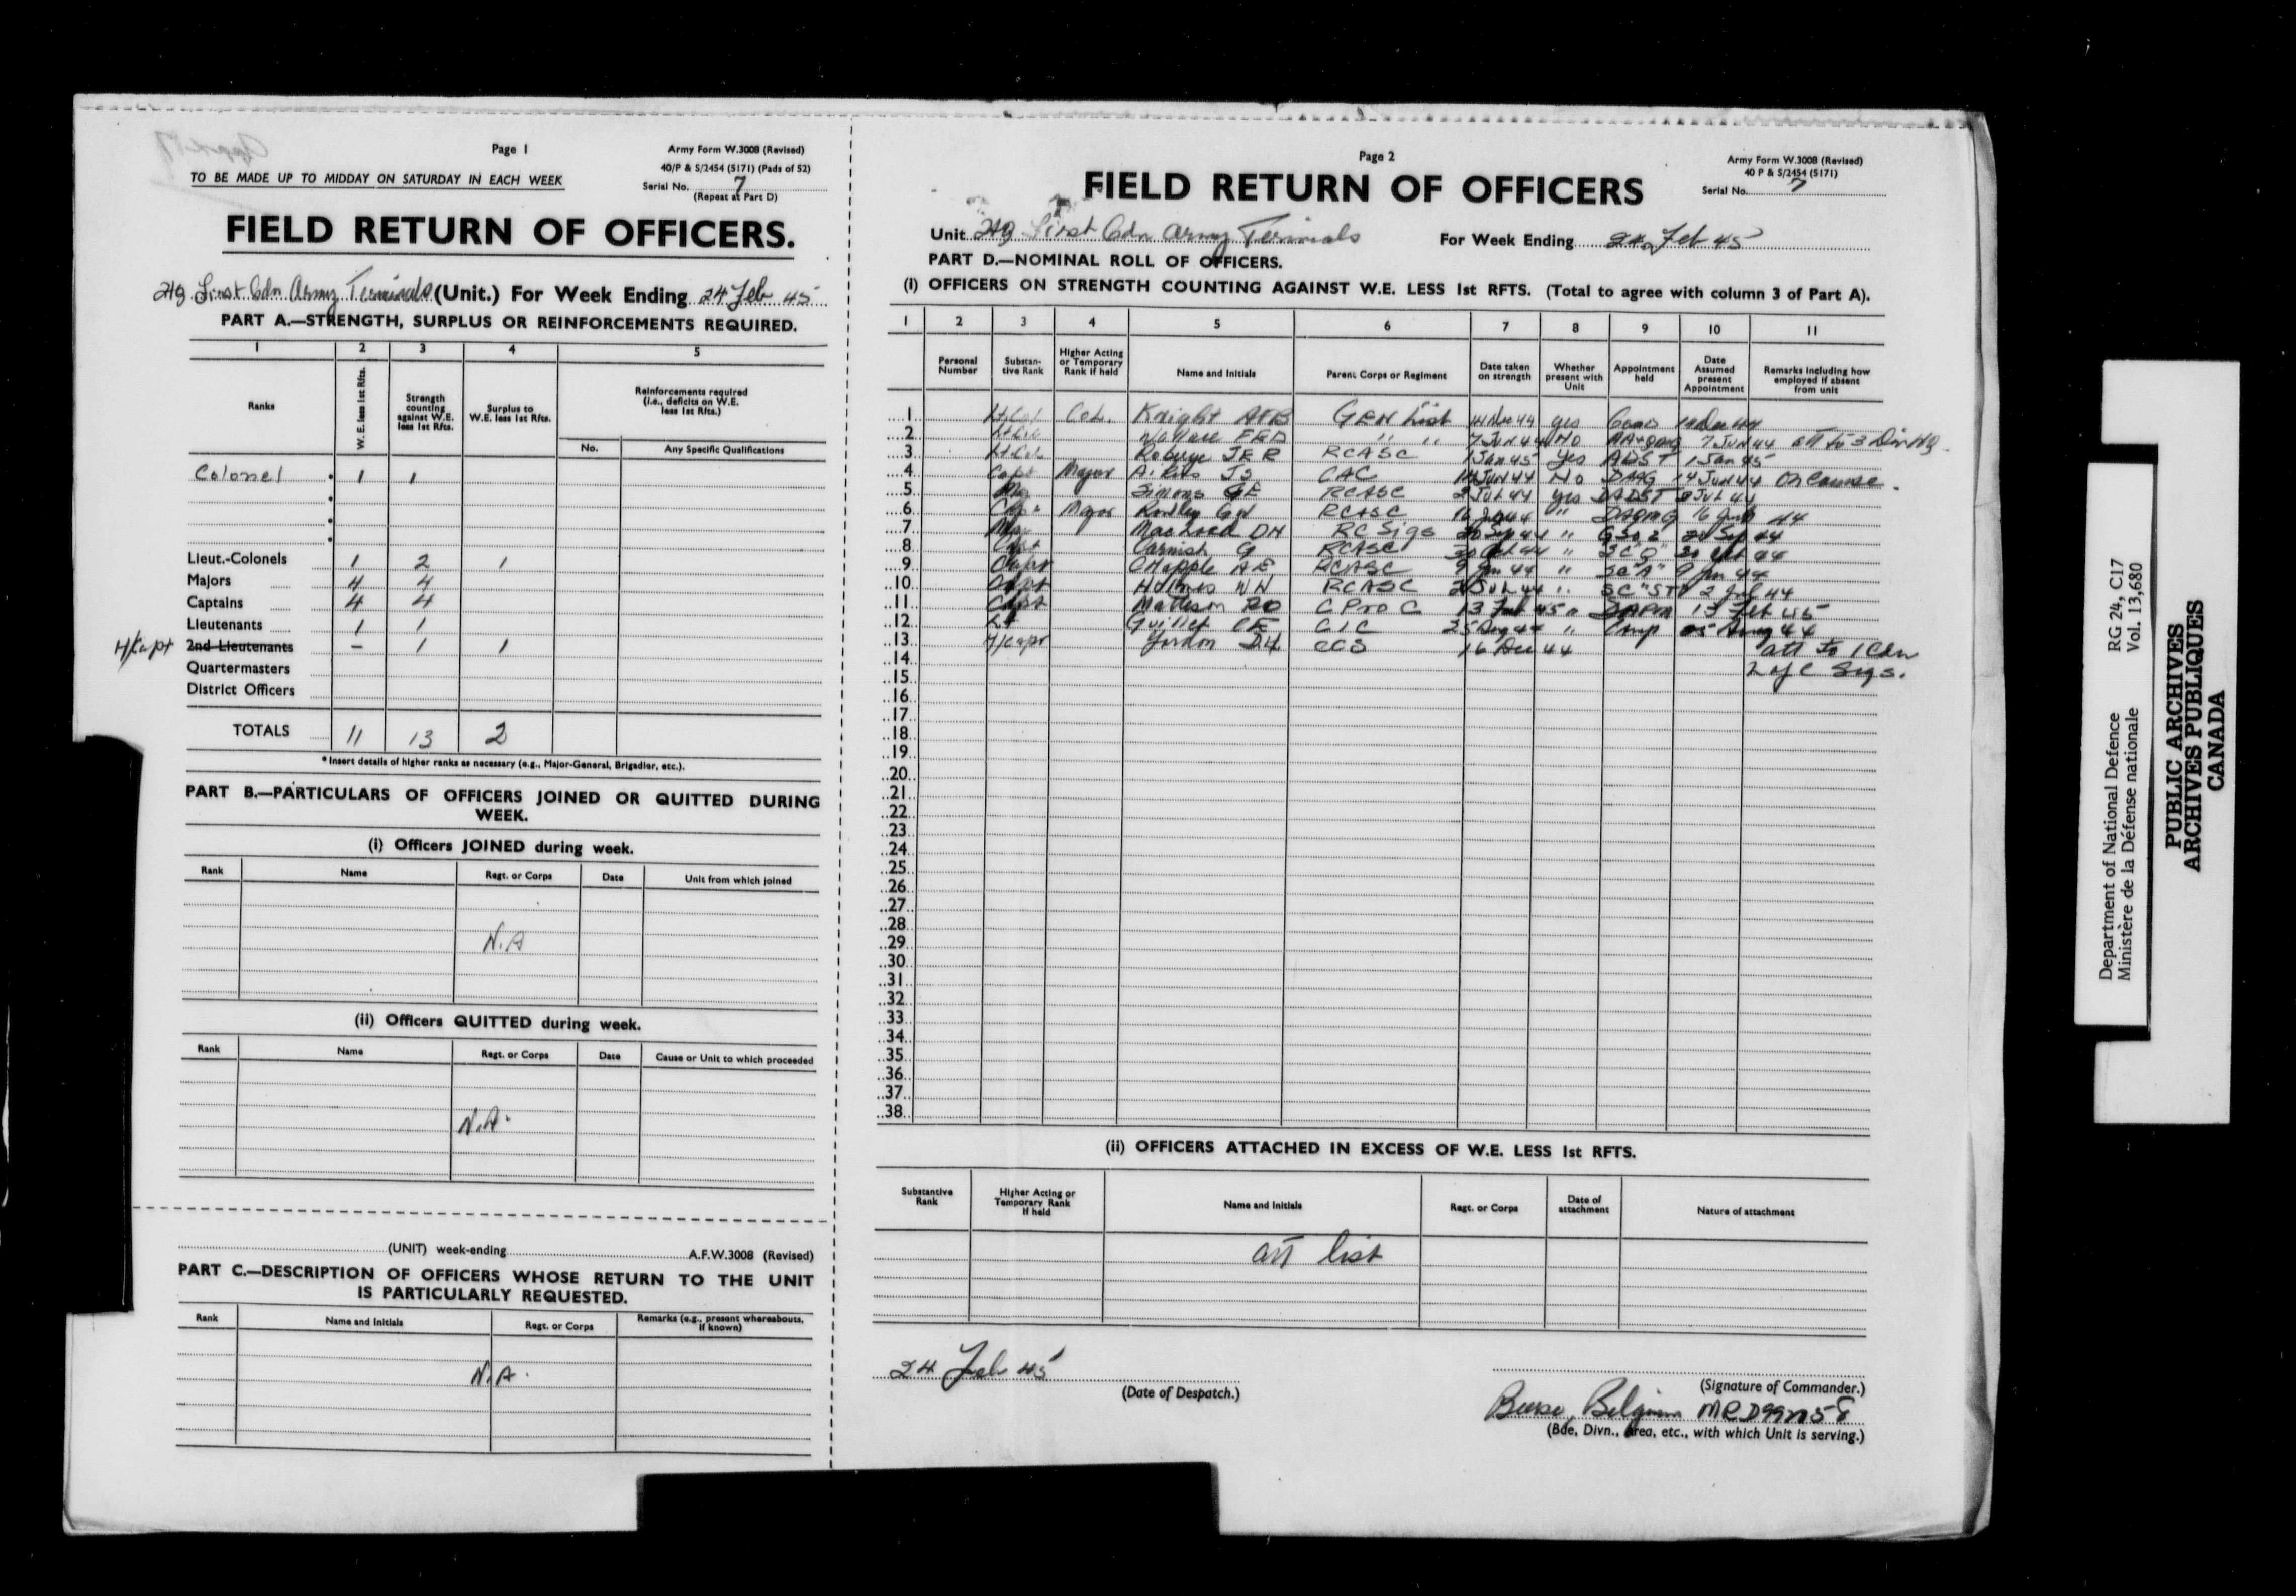 Page 1
Army Form W.3008 (Revised)
40/P & S/2454 (5171) (Pads of 52)
TO BE MADE UP TO MIDDAY ON SATURDAY IN EACH WEEK
Serial No. 7
(Repeat at Part D)
FIELD RETURN OF OFFICERS.
HQ First Cdn Army Terminals (Unit.) For Week Ending 24 Feb 45
PART A.—STRENGTH, SURPLUS OR REINFORCEMENTS REQUIRED.
1 2 3 4 5
Ranks
W.E. less 1st Rfts.
Strength counting against W.E. less 1st Rfts.
Surplus to W.E. less 1st Rfts.
Reinforcements required (i.e., deficits on W.E. less 1st Rfts.)
No. Any Specific Qualifications
Colonel 1 1
Lieut.-Colonels 1 2 1
Majors 4 4
Captains 4 4
Lieutenants 1 1
H/Capt 2nd Lieutenants – 1 1
Quartermasters
District Officers
TOTALS 11 13 2
* Insert details of higher ranks as necessary (e.g., Major-General, Brigadier, etc.).
PART B.—PARTICULARS OF OFFICERS JOINED OR QUITTED DURING
WEEK.
(i) Officers JOINED during week.
Rank Name Regt. or Corps Date Unit from which joined
N.A
(ii) Officers QUITTED during week.
Rank Name Regt. or Corps Date Cause or Unit to which proceeded
N.A.
(UNIT) week-ending A.F.W.3008 (Revised)
PART C.—DESCRIPTION OF OFFICERS WHOSE RETURN TO THE UNIT
IS PARTICULARLY REQUESTED.
Rank Name and Initials Regt. or Corps Remarks (e.g., present whereabouts, if known)
N.A.
Page 2
Army Form W.3008 (Revised)
40 P & S/2454 (5171)
Serial No. 7
FIELD RETURN OF OFFICERS
Unit HQ First Cdn Army Terminals For Week Ending 24 Feb 45
PART D.—NOMINAL ROLL OF OFFICERS.
(i) OFFICERS ON STRENGTH COUNTING AGAINST W.E. LESS 1st RFTS. (Total to agree with column 3 of Part A).
1 2 3 4 5 6 7 8 9 10 11
Personal Number
Substantive Rank
Higher Acting or Temporary Rank if held
Name and Initials
Parent Corps or Regiment
Date taken on strength
Whether present with Unit
Appointment held
Date Assumed present Appointment
Remarks including how employed if absent from unit
1 Lt Col Col. Knight AFB GEN List yes
2 Lt Col Wallace FED " " 7 Jun 44 No AA+QMG 7 Jun 44 att to 3 Div HQ
3 Lt Col JER RCASC 1 Jan 45 yes ADST 1 Jan 45
4 Capt Major JS CAC 14 Jun 44 No DAAG 14 Jun 44 on course.
5 Maj Simons GE RCASC 2 Jul 44 yes DADST 2 Jul 44
6 Capt Major RCASC " DAQMG 44
7 Maj MacLeod DH RC Sigs 20 Sep 44 " GSO 2 20 Sep 44
8 Capt Carnish G RCASC 30 Oct 44 " SC "Q" 30 Oct 44
9 Capt Chapple AE RCASC 9 Jun 44 " SC "A" 9 Jun 44
10 Capt Holmes WN RCASC 2 Jul 44 " SC "ST" 2 Jul 44
11 Capt Matheson C Pro C 13 Feb 45 " DAPM 13 Feb 45
12 Lt Guillet CE CIC 25 Aug 44 " Camp 25 Aug 44
13 H/Capt Gordon DH CCS 16 Dec 44 att to 1 Cdn
14 L of C Sigs.
15
16
17
18
19
20
21
22
23
24
25
26
27
28
29
30
31
32
33
34
35
36
37
38
(ii) OFFICERS ATTACHED IN EXCESS OF W.E. LESS 1st RFTS.
Substantive Rank
Higher Acting or Temporary Rank if held
Name and Initials
Regt. or Corps
Date of attachment
Nature of attachment
att list
24 Feb 45
(Date of Despatch.)
(Signature of Commander.)
Belgium
(Bde, Divn., Area, etc., with which Unit is serving.)
Department of National Defence RG 24, C17
Ministère de la Défense nationale Vol. 13,680
PUBLIC ARCHIVES
ARCHIVES PUBLIQUES
CANADA